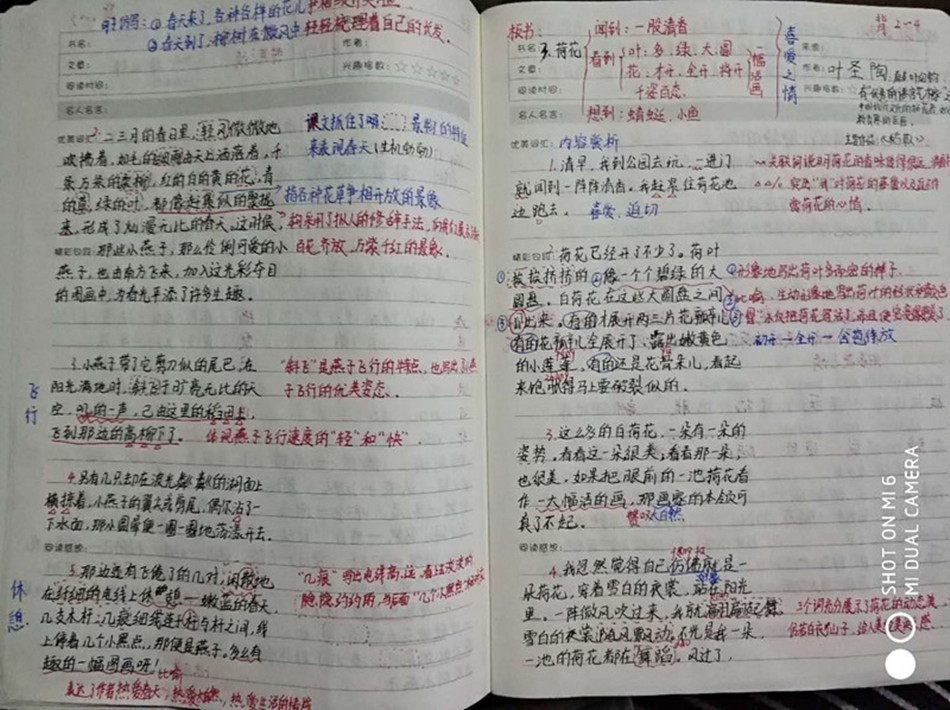 ①春天来了,各种各样的花儿
②春天到了,柳树在微风中轻轻梳理着自己的长发。
书名:
作者:
文章:
兴趣指数:☆☆☆☆☆
阅读时间:
名人名言:
优美词汇:
2.二三月的春日里,轻风微微地
吹拂着,如毛的细雨由天上洒落着,千
条万条的柔柳,红的白的黄的花,青
的草,绿的叶,都像赶集似的聚拢
来,形成了烂漫无比的春天。这时候,
精彩句段:
那些小燕子,那么伶俐可爱的小
燕子,也由南方飞来,加入这光彩夺目
的图画中,为春光平添了许多生趣。
课文抓住了明 最前的特征
来表现春天(生机勃勃)
指各种花草争相开放的景象
百花齐放、万紫千红的景象。
飞行
3.小燕子带了它剪刀似的尾巴,在
阳光满地时,斜飞于旷亮无比的天
空,叽的一声,已由这里的稻田上,
飞到那边的高柳下了。
“斜飞”是燕子飞行的特点,也写出了燕
子飞行的优美姿态。
体现燕子飞行速度的“轻”和“快”.
4.另有几只却在波光粼粼的湖面上
横掠着,小燕子的翼尖或剪尾,偶尔沾了一
下水面,那小圆晕便一圈一圈地荡漾开去。
阅读感想:
休憩
5.那边还有飞倦了的几对,闲散地
在纤细的电线上休憩——嫩蓝的春天,
几支木杆,几痕细线连于杆与杆之间,线
上停着几个小黑点,那便是燕子。多么有
趣的一幅图画呀!
比喻
“几痕”写出电线高、远,看上去
隐隐约约的,与后面“几个小黑点”
表达了作者热爱春天,热爱大自然,热爱生活的情感
板书:
3.荷花
闻到:一股清香
看到
叶:多、绿、大圆
花:才开、全开、将开
千姿百态
想到:蜻蜓、小鱼
一幅活画
喜爱之情
背2-4
书名
文章:
阅读时间:
名人名言:
作者:叶圣陶,
优美词汇:
内容赏析
1.清早,我到公园去玩,一进门
就闻到一阵阵清香。我赶紧往荷花池
边跑去。
喜爱、迫切
精彩句段:
2.荷花已经开了不少了。荷叶
挨挨挤挤的,像一个个碧绿的大
圆盘。白荷花在这些大圆盘之间
冒出来。有的才展开两三片花瓣儿。
有的花瓣儿全展开了,露出嫩黄色
的小莲蓬。有的还是花骨朵儿,看起
来饱胀得马上要破裂似的。
①形象地写出荷叶多而密的样子.
②比喻,生动形象地写出荷叶的形状和颜色
初开→全开→含苞待放
3.这么多的白荷花,一朵有一朵的
姿势。看看这一朵,很美;看看那一朵,
也很美。如果把眼前的一池荷花看
作一大幅活的画,那画家的本领可
真了不起。
赞叹大自然
阅读感想:
4.我忽然觉得自己仿佛就是一
朵荷花,穿着雪白的衣裳,站在阳光
里。一阵微风吹过来,我就翩翩起舞,
雪白的衣裳随风飘动。不光是我一朵,
一池的荷花都在舞蹈。风过了,
SHOT ON MI 6
MI DUAL CAMERA